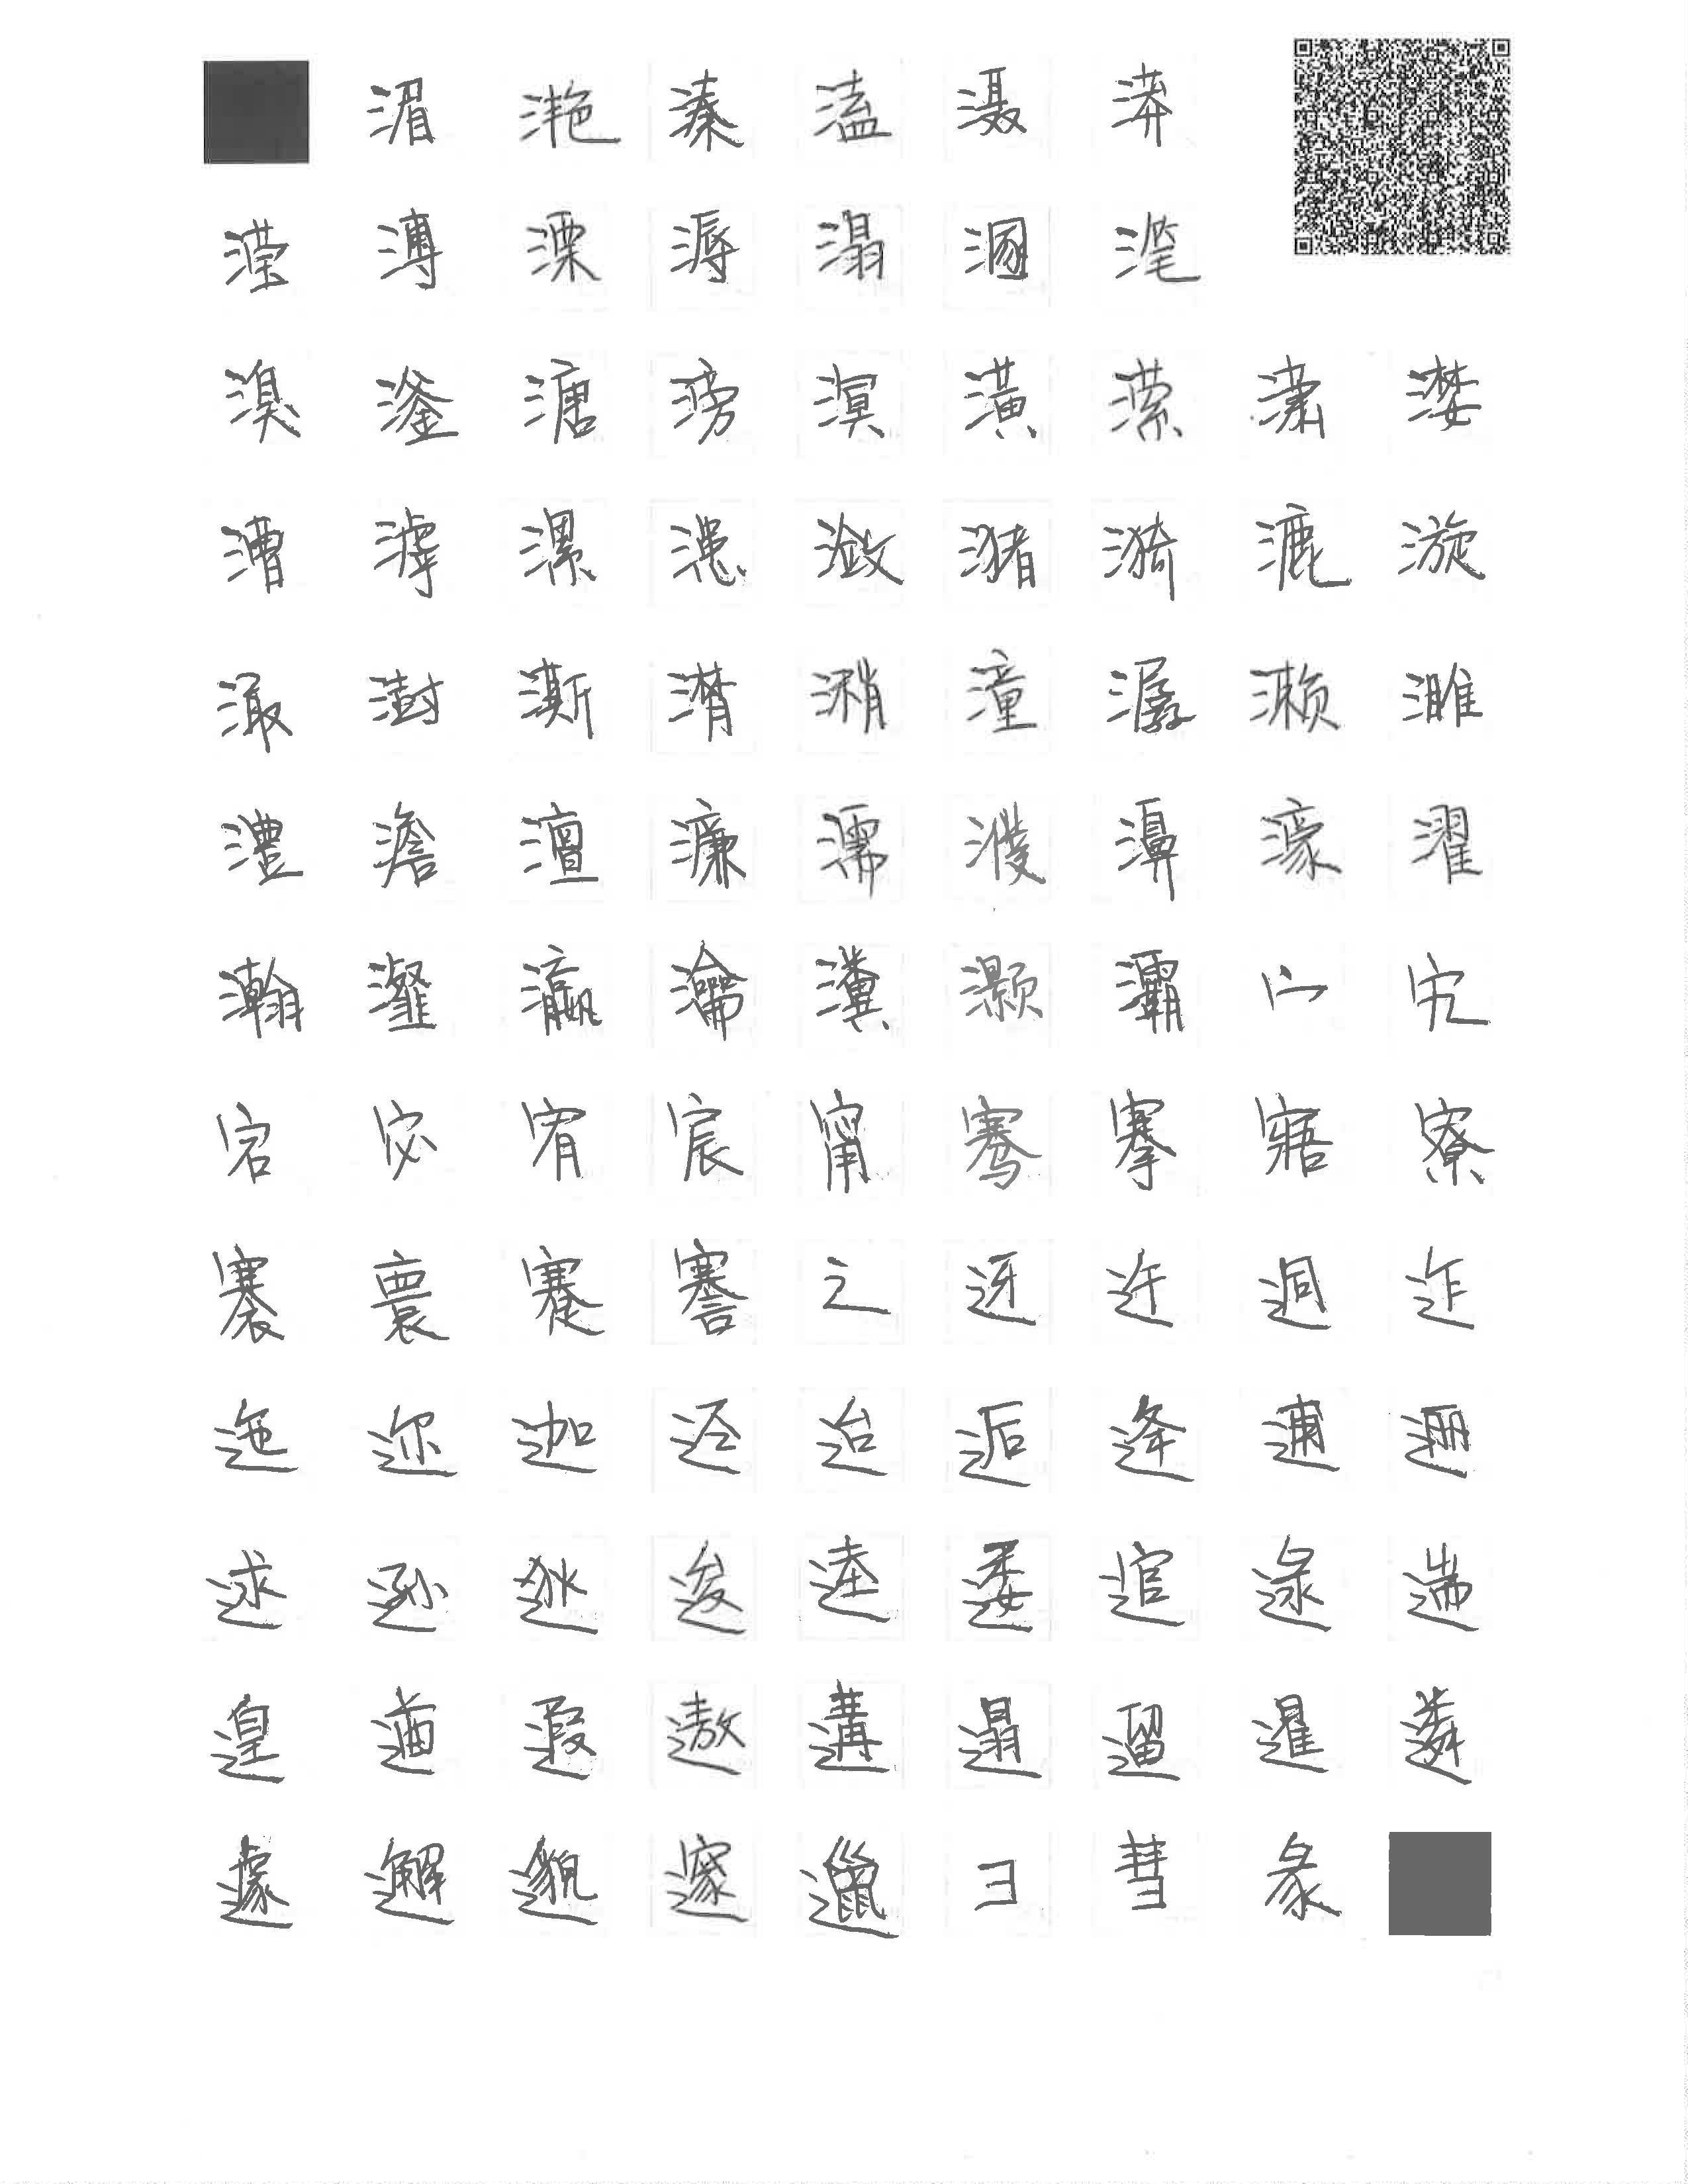 湄滟溱溘滠漭
滢溥溧溽溻溷滗
溴滏溏滂溟潢潆潇漤
漕滹漯漶潋潴漪漉漩
澉澍澌潸潲潼潺濑濉
澧澹澶濂濡濮濞濠濯
瀚瀣瀛瀹瀵灏灞宀宄
宕宓宥宸甯骞搴寤寮
褰寰蹇謇辶迓迕迥迮
迤迩迦迳迨逅逄逋逦
逑逍逖逡逵逶逭逯遄
遑遒遐遨遘遢遛暹遴
遽邂邈邃邋彐彗彖